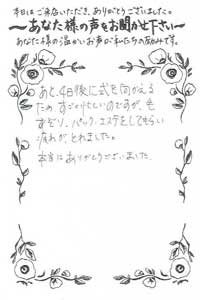 本日はご来店いただき、ありがとうございました。
～あなた様の声をお聞かせ下さい～
あなた様の温かいお声が私たちの励みです。
あと、4日後に式を向かえる
ため すごく忙しいのですが、毛
そり、パック、エステをしてもらい
疲れが、とれました。
本当にありがとうございました。